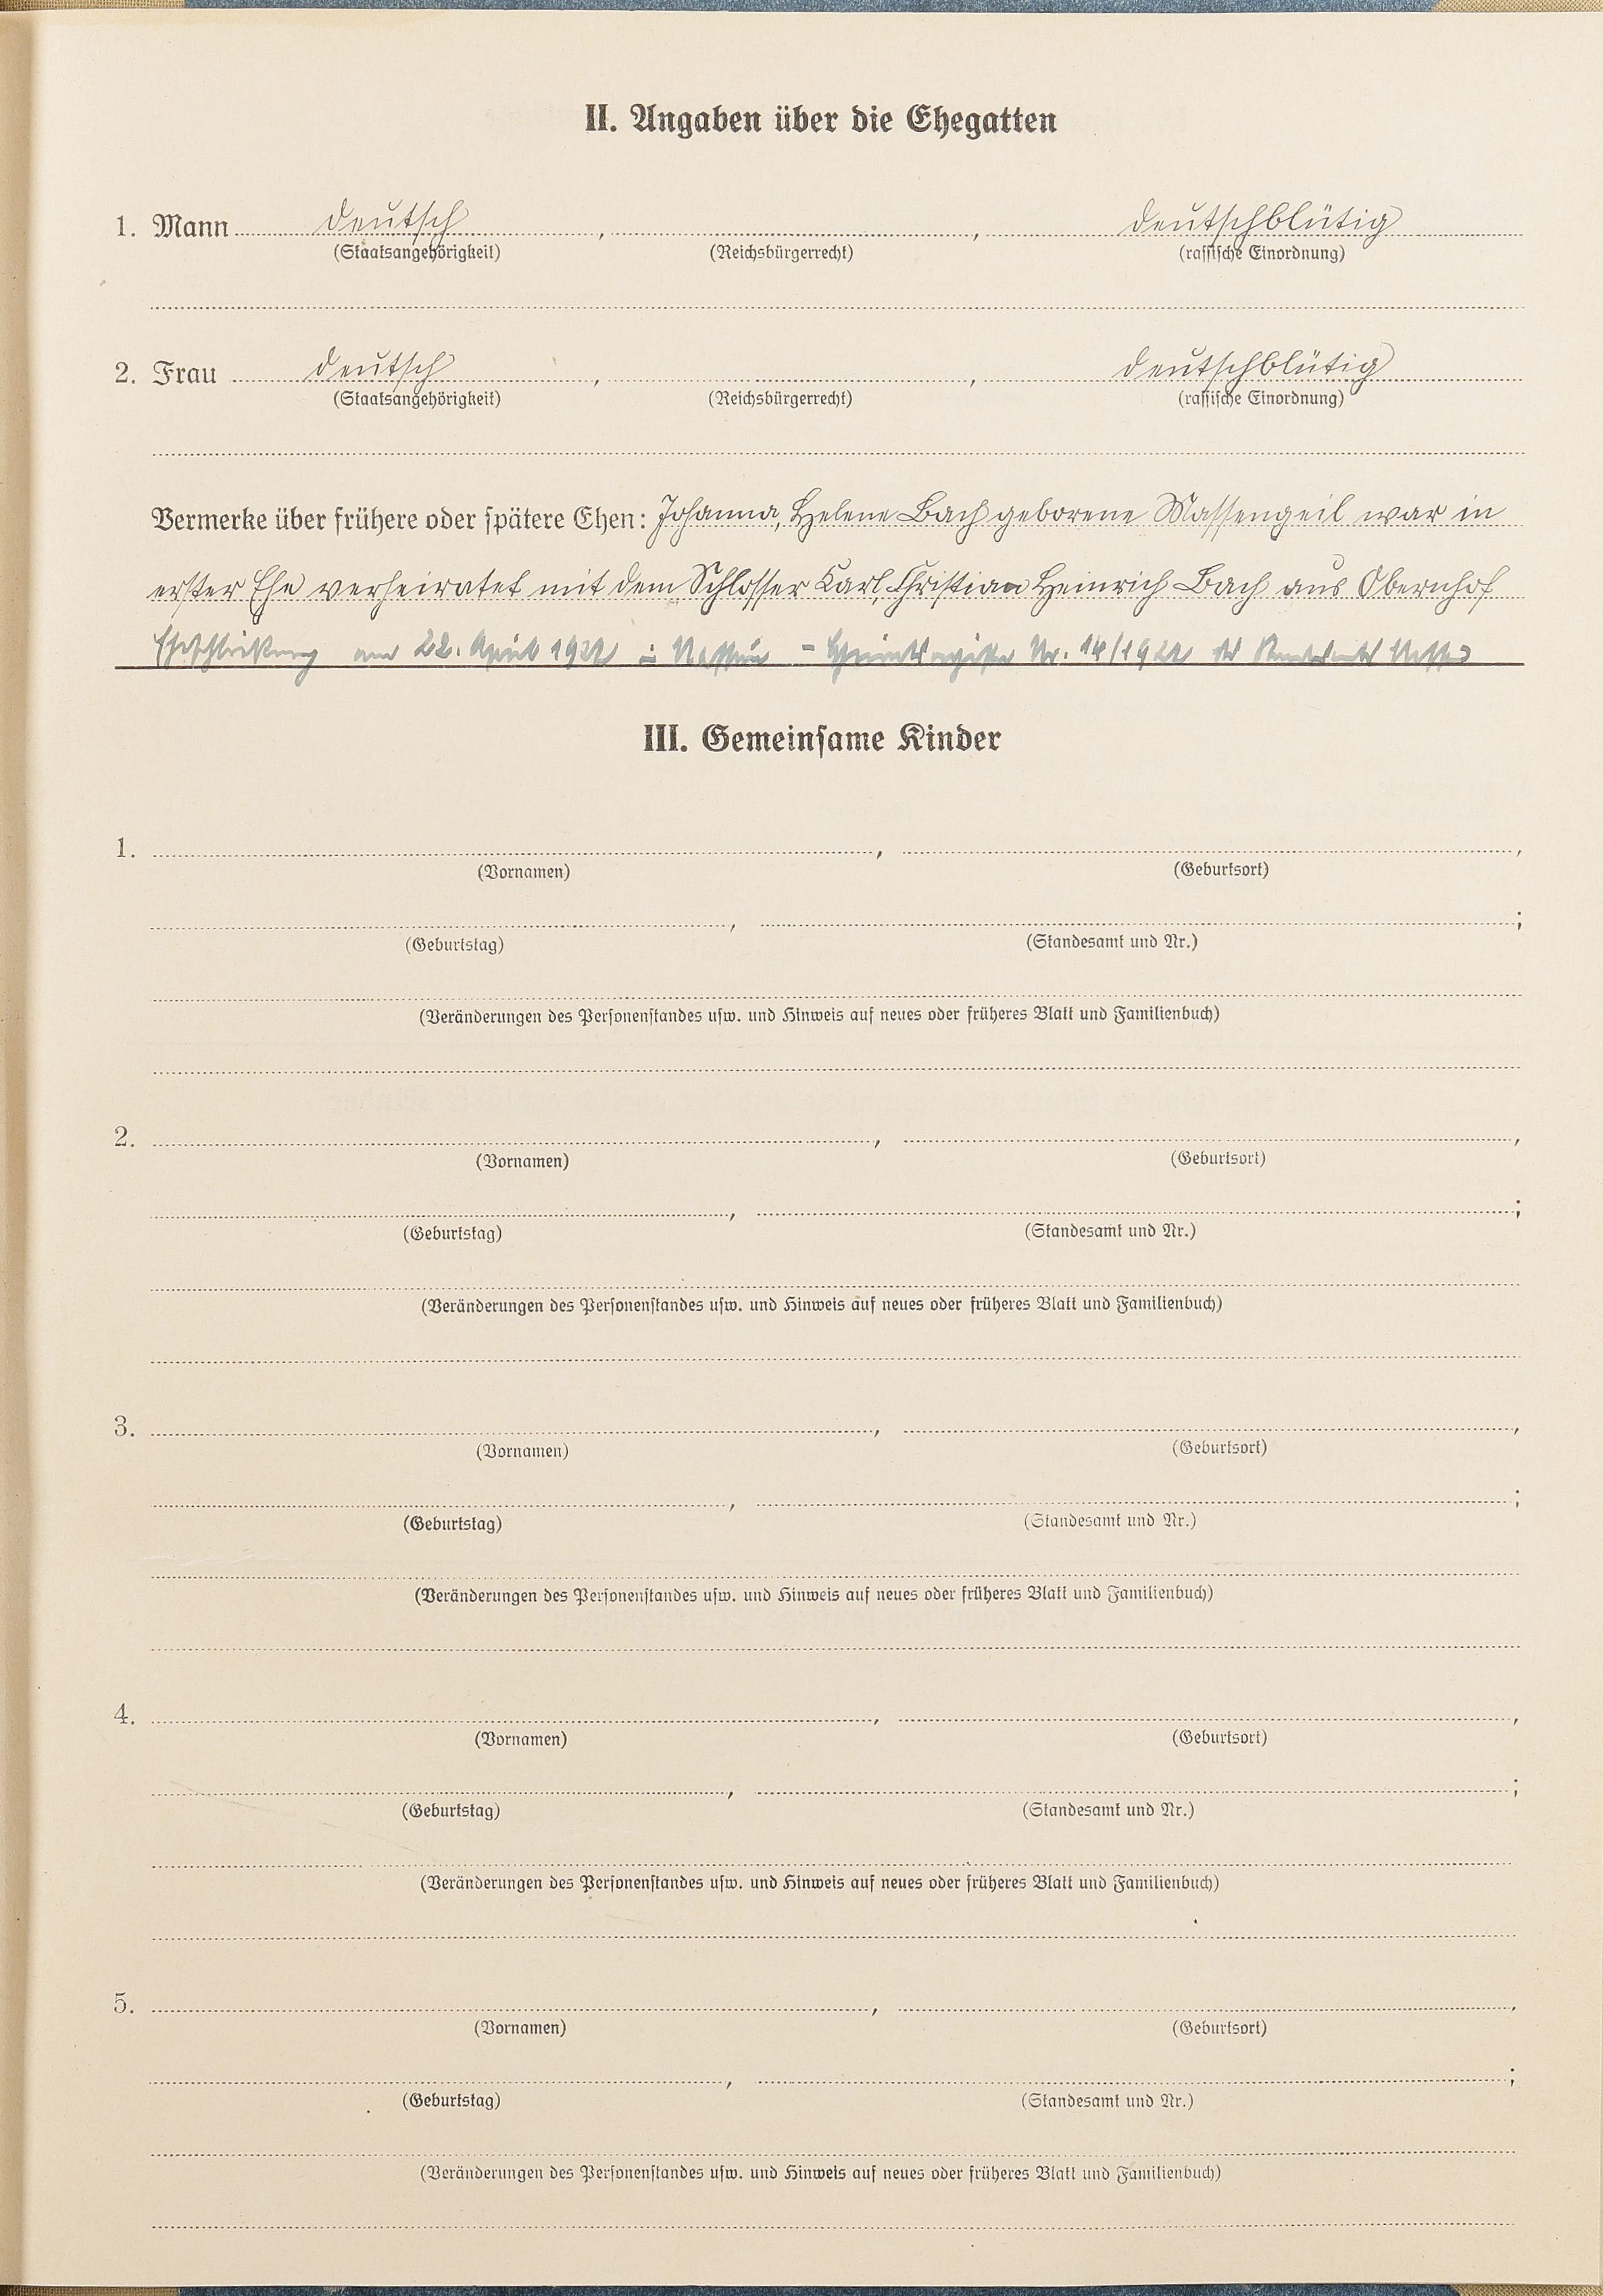 II. Angaben über die Ehegatten
1. Mann deutsch, , deutschblütig
(Staatsangehörigkeit) (Reichsbürgerrecht) (rassische Einordnung)
2. Frau deutsch, , deutschblütig
(Staatsangehörigkeit) (Reichsbürgerrecht) (rassische Einordnung)
Vermerke über frühere oder spätere Ehen: Johanna, Helene Bach geborene Massengeil war in
erster Ehe verheiratet mit dem Schlosser Karl, Christian Heinrich Bach aus Obernhof
Eheschließung am 22. April 1922 in Nassau - Heiratsregister Nr. 14/1922 des Standesamts Nassau
III. Gemeinsame Kinder
1. , ,
(Vornamen) (Geburtsort)
, ;
(Geburtstag) (Standesamt und Nr.)
(Veränderungen des Personenstandes usw. und Hinweis auf neues oder früheres Blatt und Familienbuch)
2. , ,
(Vornamen) (Geburtsort)
, ;
(Geburtstag) (Standesamt und Nr.)
(Veränderungen des Personenstandes usw. und Hinweis auf neues oder früheres Blatt und Familienbuch)
3. , ,
(Vornamen) (Geburtsort)
, ;
(Geburtstag) (Standesamt und Nr.)
(Veränderungen des Personenstandes usw. und Hinweis auf neues oder früheres Blatt und Familienbuch)
4. , ,
(Vornamen) (Geburtsort)
, ;
(Geburtstag) (Standesamt und Nr.)
(Veränderungen des Personenstandes usw. und Hinweis auf neues oder früheres Blatt und Familienbuch)
5. , ,
(Vornamen) (Geburtsort)
, ;
(Geburtstag) (Standesamt und Nr.)
(Veränderungen des Personenstandes usw. und Hinweis auf neues oder früheres Blatt und Familienbuch)